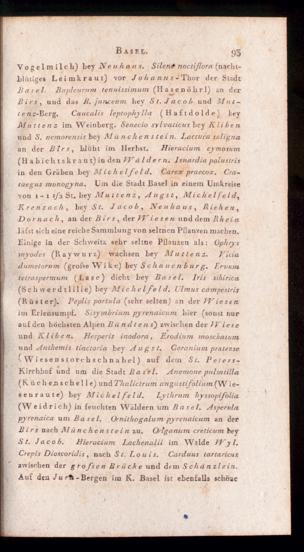 BASEL. 93
Vogelmilch) bey Neuhaus. Silene noctiflora (nacht-
blütiges Leimkraut) vor Johanns-Thor der Stadt
Basel. Bupleurum tenuissimum (Hasenöhrl) an der
Birs, und das B. junceum bey St. Jacob und Mut-
tenz-Berg. Caucalis leptophylla (Haftdolde) bey
Muttenz im Weinberg. Senecio sylvaticus bey Kliben
und S. nemorensis bey Münchenstein. Lactuca saligna
an der Birs, blüht im Herbst. Hieracium cymosum
(Habichtskraut) in den Waldern. Isnardia palustris
in den Gräben bey Michelfeld. Carex praecox. Cra-
taegus monogyna. Um die Stadt Basel in einem Umkreise
von 1-1 1/2 St., bey Muttenz, Augst, Michelfeld,
Krenzach, bey St. Jacob, Neuhaus, Riehen,
Dornach, an der Birs, der Wiesen und dem Rhein
läfst sich eine reiche Sammlung von seltnen Pflanzen machen.
Einige in der Schweitz sehr seltne Pflanzen als: Ophrys
myodes (Raywurz) wachsen bey Muttenz. Vicia
dumetorum (grofse Wike) bey Schauenburg. Ervum
tetraspermum (Lase) dicht bey Basel. Iris sibirica
(Schwerdtlilie) bey Michelfeld. Ulmus campestris
(Rüster). Peplis portula (sehr selten) an der Wiesen
im Erlensumpf. Sisymbrium pyrenaicum hier (sonst nur
auf den höchsten Alpen Bündtens) zwischen der Wiese
und Kliben. Hesperis inodora, Erodium moschatum
und Anthemis tinctoria bey Augst. Geranium pratense
(Wiesenstorchschnabel) auf dem St. Peters-
Kirchhof und um die Stadt Basel. Anemone pulsatilla
(Küchenschelle) und Thalictrum angustifolium (Wie-
senraute) bey Michelfeld. Lythrum hyssopifolia
(Weidrich) in feuchten Wäldern um Basel. Asperula
pyrenaica um Basel. Ornithogalum pyrenaicum an der
Birs nach Münchenstein zu. Origanum creticum bey
St. Jacob. Hieracium Lachenalii im Walde Wyl.
Crepis Dioscoridis, nach St. Louis. Carduus tartaricus
zwischen der grofsen Brücke und dem Schänzlein.
Auf den Jura-Bergen im K. Basel ist ebenfalls schöne